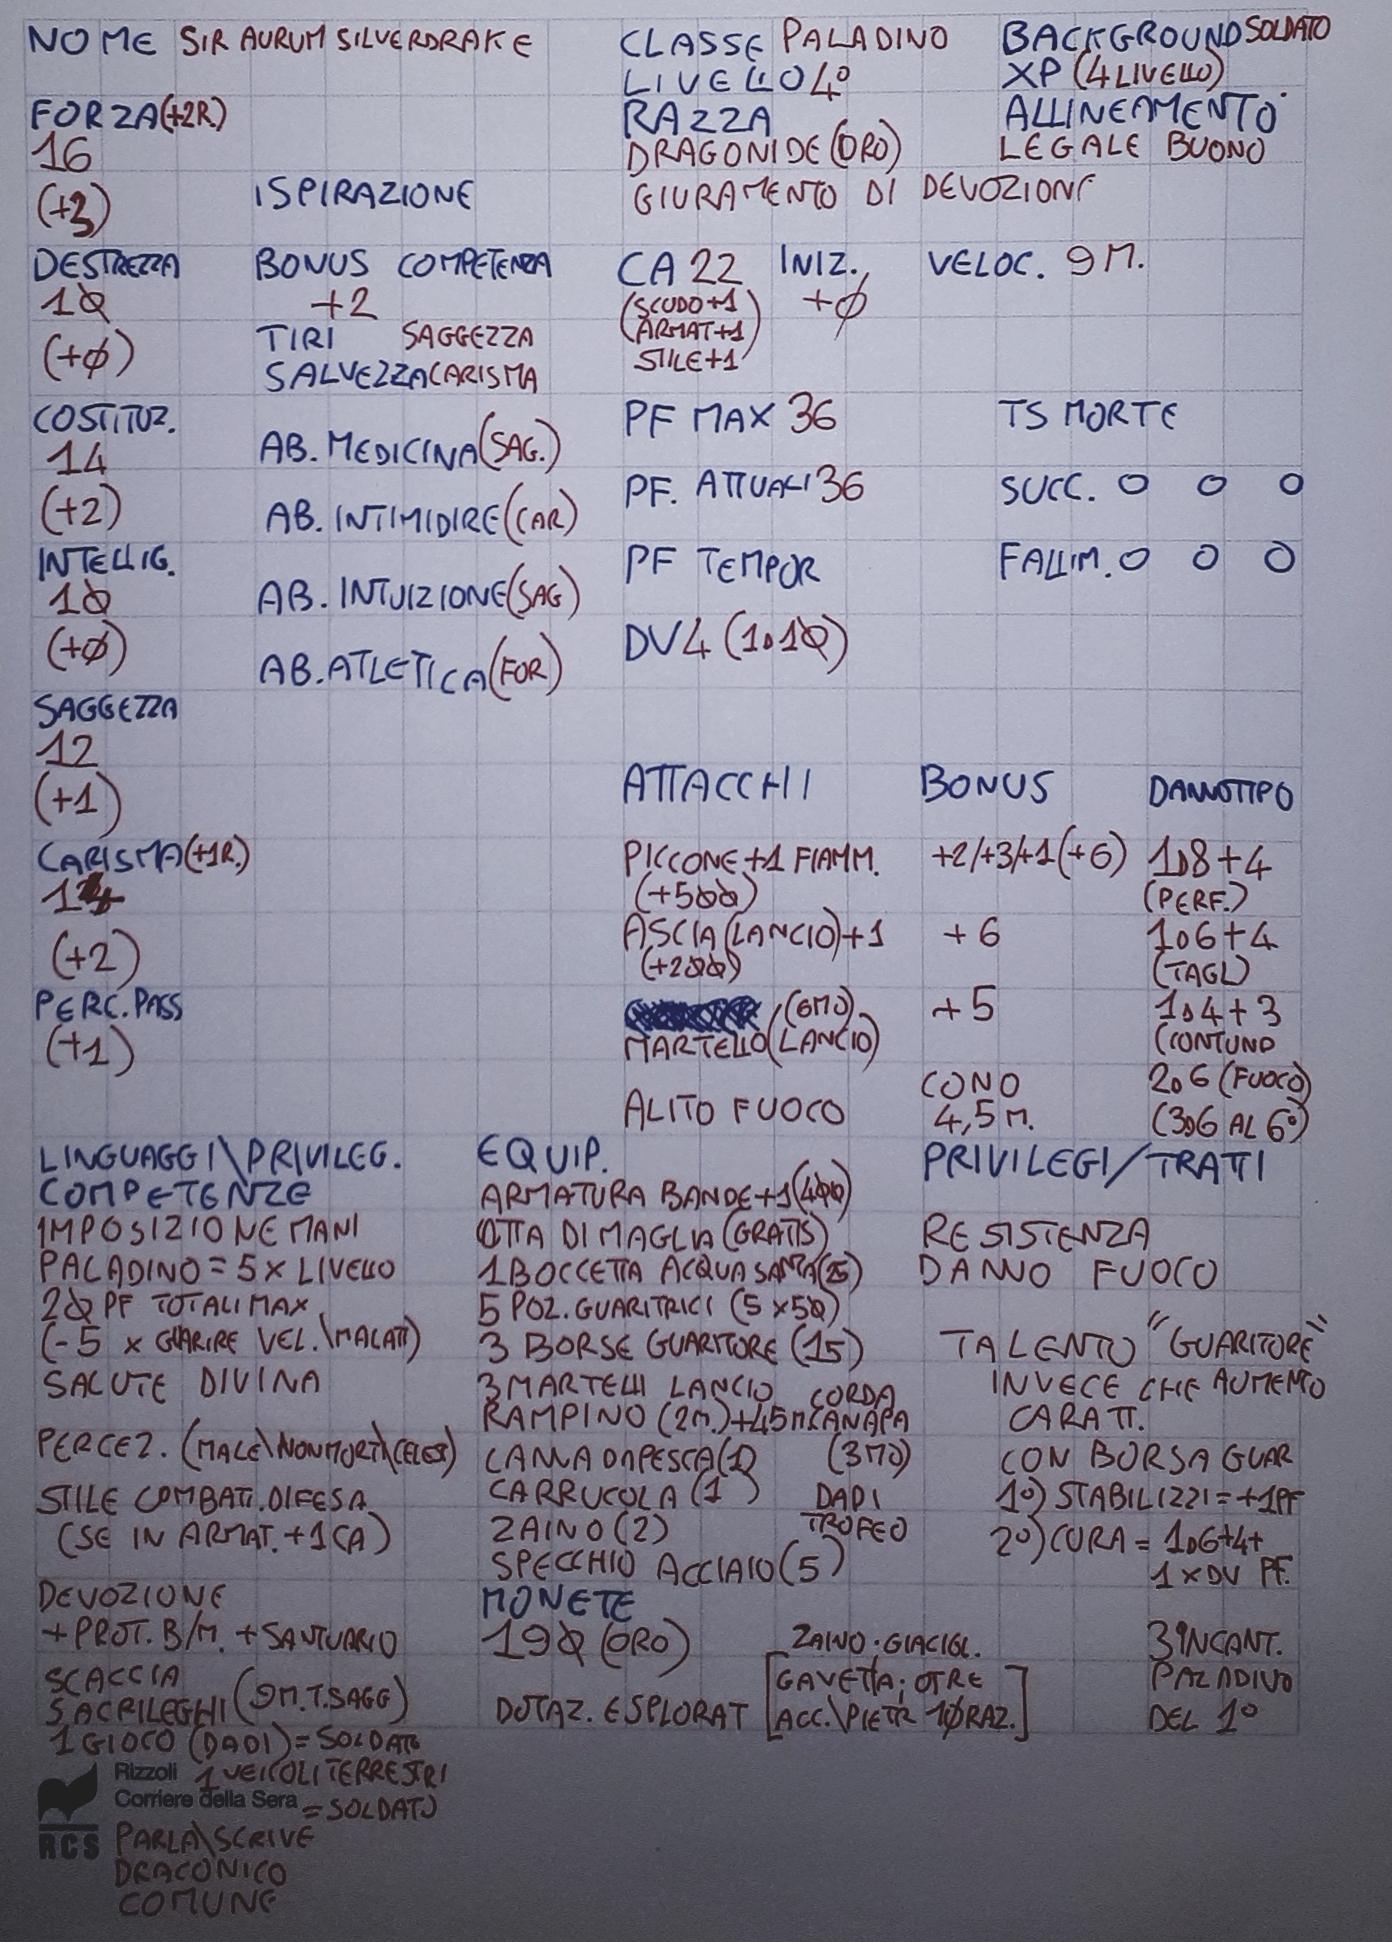 NOME SIR AURUM SILVERDRAKE
CLASSE PALADINO
BACKGROUND SOLDATO
LIVELLO 4°
XP (4 LIVELLO)
FORZA (+2R.)
16
(+3)
RAZZA
DRAGONIDE (ORO)
ALLINEAMENTO
LEGALE BUONO
ISPIRAZIONE
GIURAMENTO DI DEVOZIONE
DESTREZZA
10
(+0)
BONUS COMPETENZA
+2
TIRI SAGGEZZA
SALVEZZA CARISMA
CA 22
(SCUDO+1
ARMAT+1)
STILE+1
INIZ.
+0
VELOC. 9 M.
COSTITUZ.
14
(+2)
AB. MEDICINA (SAG.)
AB. INTIMIDIRE (CAR)
PF MAX 36
PF. ATTUALI 36
TS MORTE
SUCC. O O O
INTELLIG.
10
(+0)
AB. INTUIZIONE (SAG)
AB. ATLETICA (FOR)
PF TEMPOR
DV 4 (1D10)
FALLIM. O O O
SAGGEZZA
12
(+1)
ATTACCHI
BONUS
DANNO TIPO
CARISMA (+1R.)
14
(+2)
PICCONE +1 FIAMM.
(+500)
+2/+3/+1 (+6)
1D8+4
(PERF.)
ASCIA (LANCIO) +1
(+200)
+6
1D6+4
(TAGL)
PERC. PASS
(+1)
(6MO)
MARTELLO (LANCIO)
+5
1D4+3
(CONTUND
ALITO FUOCO
CONO
4,5 M.
2D6 (FUOCO)
(3D6 AL 6°)
LINGUAGGI\PRIVILEG.
COMPETENZE
IMPOSIZIONE MANI
PALADINO = 5 X LIVELLO
20 PF TOTALI MAX
(-5 X GUARIRE VEL.\MALATT)
SALUTE DIVINA
PERCEZ. (MALE\NONMORTI\CELES)
STILE COMBATT. DIFESA
(SE IN ARMAT. +1 CA)
DEVOZIONE
+ PROT. B/M. + SANTUARIO
SCACCIA
SACRILEGHI (9M. T.SAGG)
1 GIOCO (DADI) = SOLDATO
1 VEICOLI TERRESTRI
= SOLDATO
PARLA\SCRIVE
DRACONICO
COMUNE
EQUIP.
ARMATURA BANDE +1 (400)
COTTA DI MAGLIA (GRATIS)
1 BOCCETTA ACQUA SANTA (25)
5 POZ. GUARITRICI (5 X 50)
3 BORSE GUARITORE (15)
3 MARTELLI LANCIO CORDA
RAMPINO (2M.) + 45 M. CANAPA
CANNA DA PESCA (1) (3 MO)
CARRUCOLA (1) DADI
ZAINO (2) TROFEO
SPECCHIO ACCIAIO (5)
MONETE
190 (ORO)
DOTAZ. ESPLORAT
ZAINO; GIACIGL.
[GAVETTA; OTRE
ACC.\PIETR 10 RAZ.]
PRIVILEGI/TRATTI
RESISTENZA
DANNO FUOCO
TALENTO "GUARITORE"
INVECE CHE AUMENTO
CARATT.
CON BORSA GUAR
1°) STABILIZZI = +1PF
2°) CURA = 1D6+4+
1 X DV PF.
3 INCANT.
PALADINO
DEL 1°
Rizzoli
Corriere della Sera
RCS